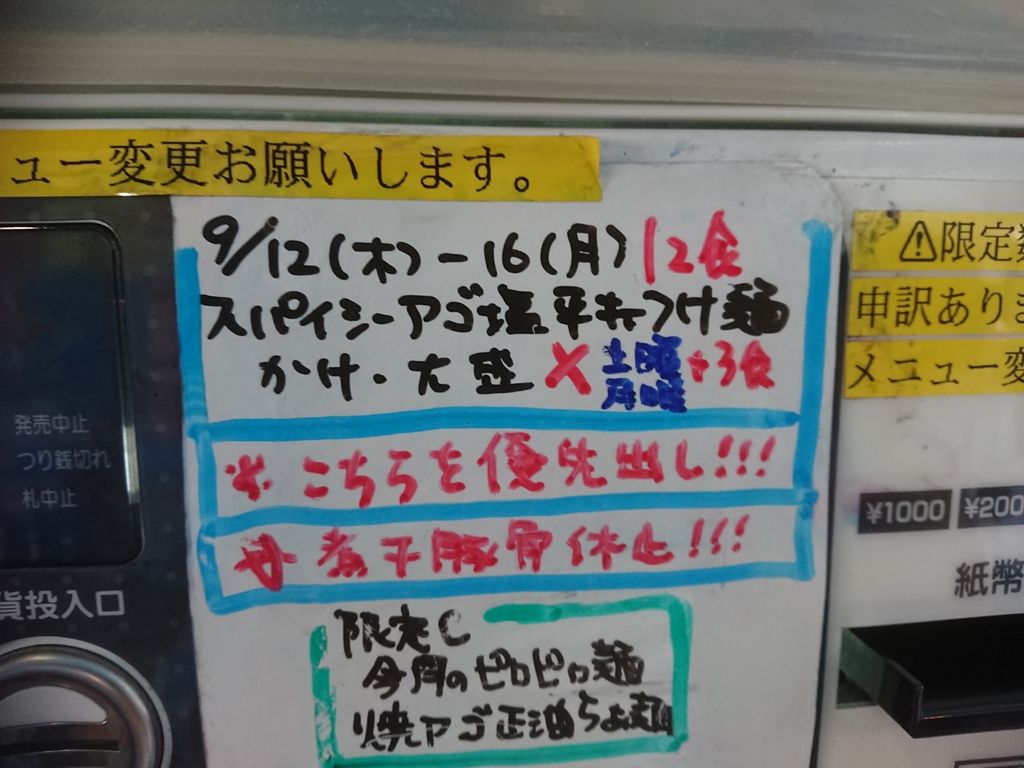 ュー変更お願いします。
9/12(木)-16(月) 12食
スパイシーアゴ塩平打つけ麺
かけ・大盛 × 土曜 月曜 +3食
※こちらを優先出し!!!
煮干豚骨休止!!!
限定C
今月のピロピロ麺
焼アゴ正油
⚠限定数
申訳ありま
メニュー変
発売中止
つり銭切れ
札中止
貨投入口
¥1000 ¥200
紙幣